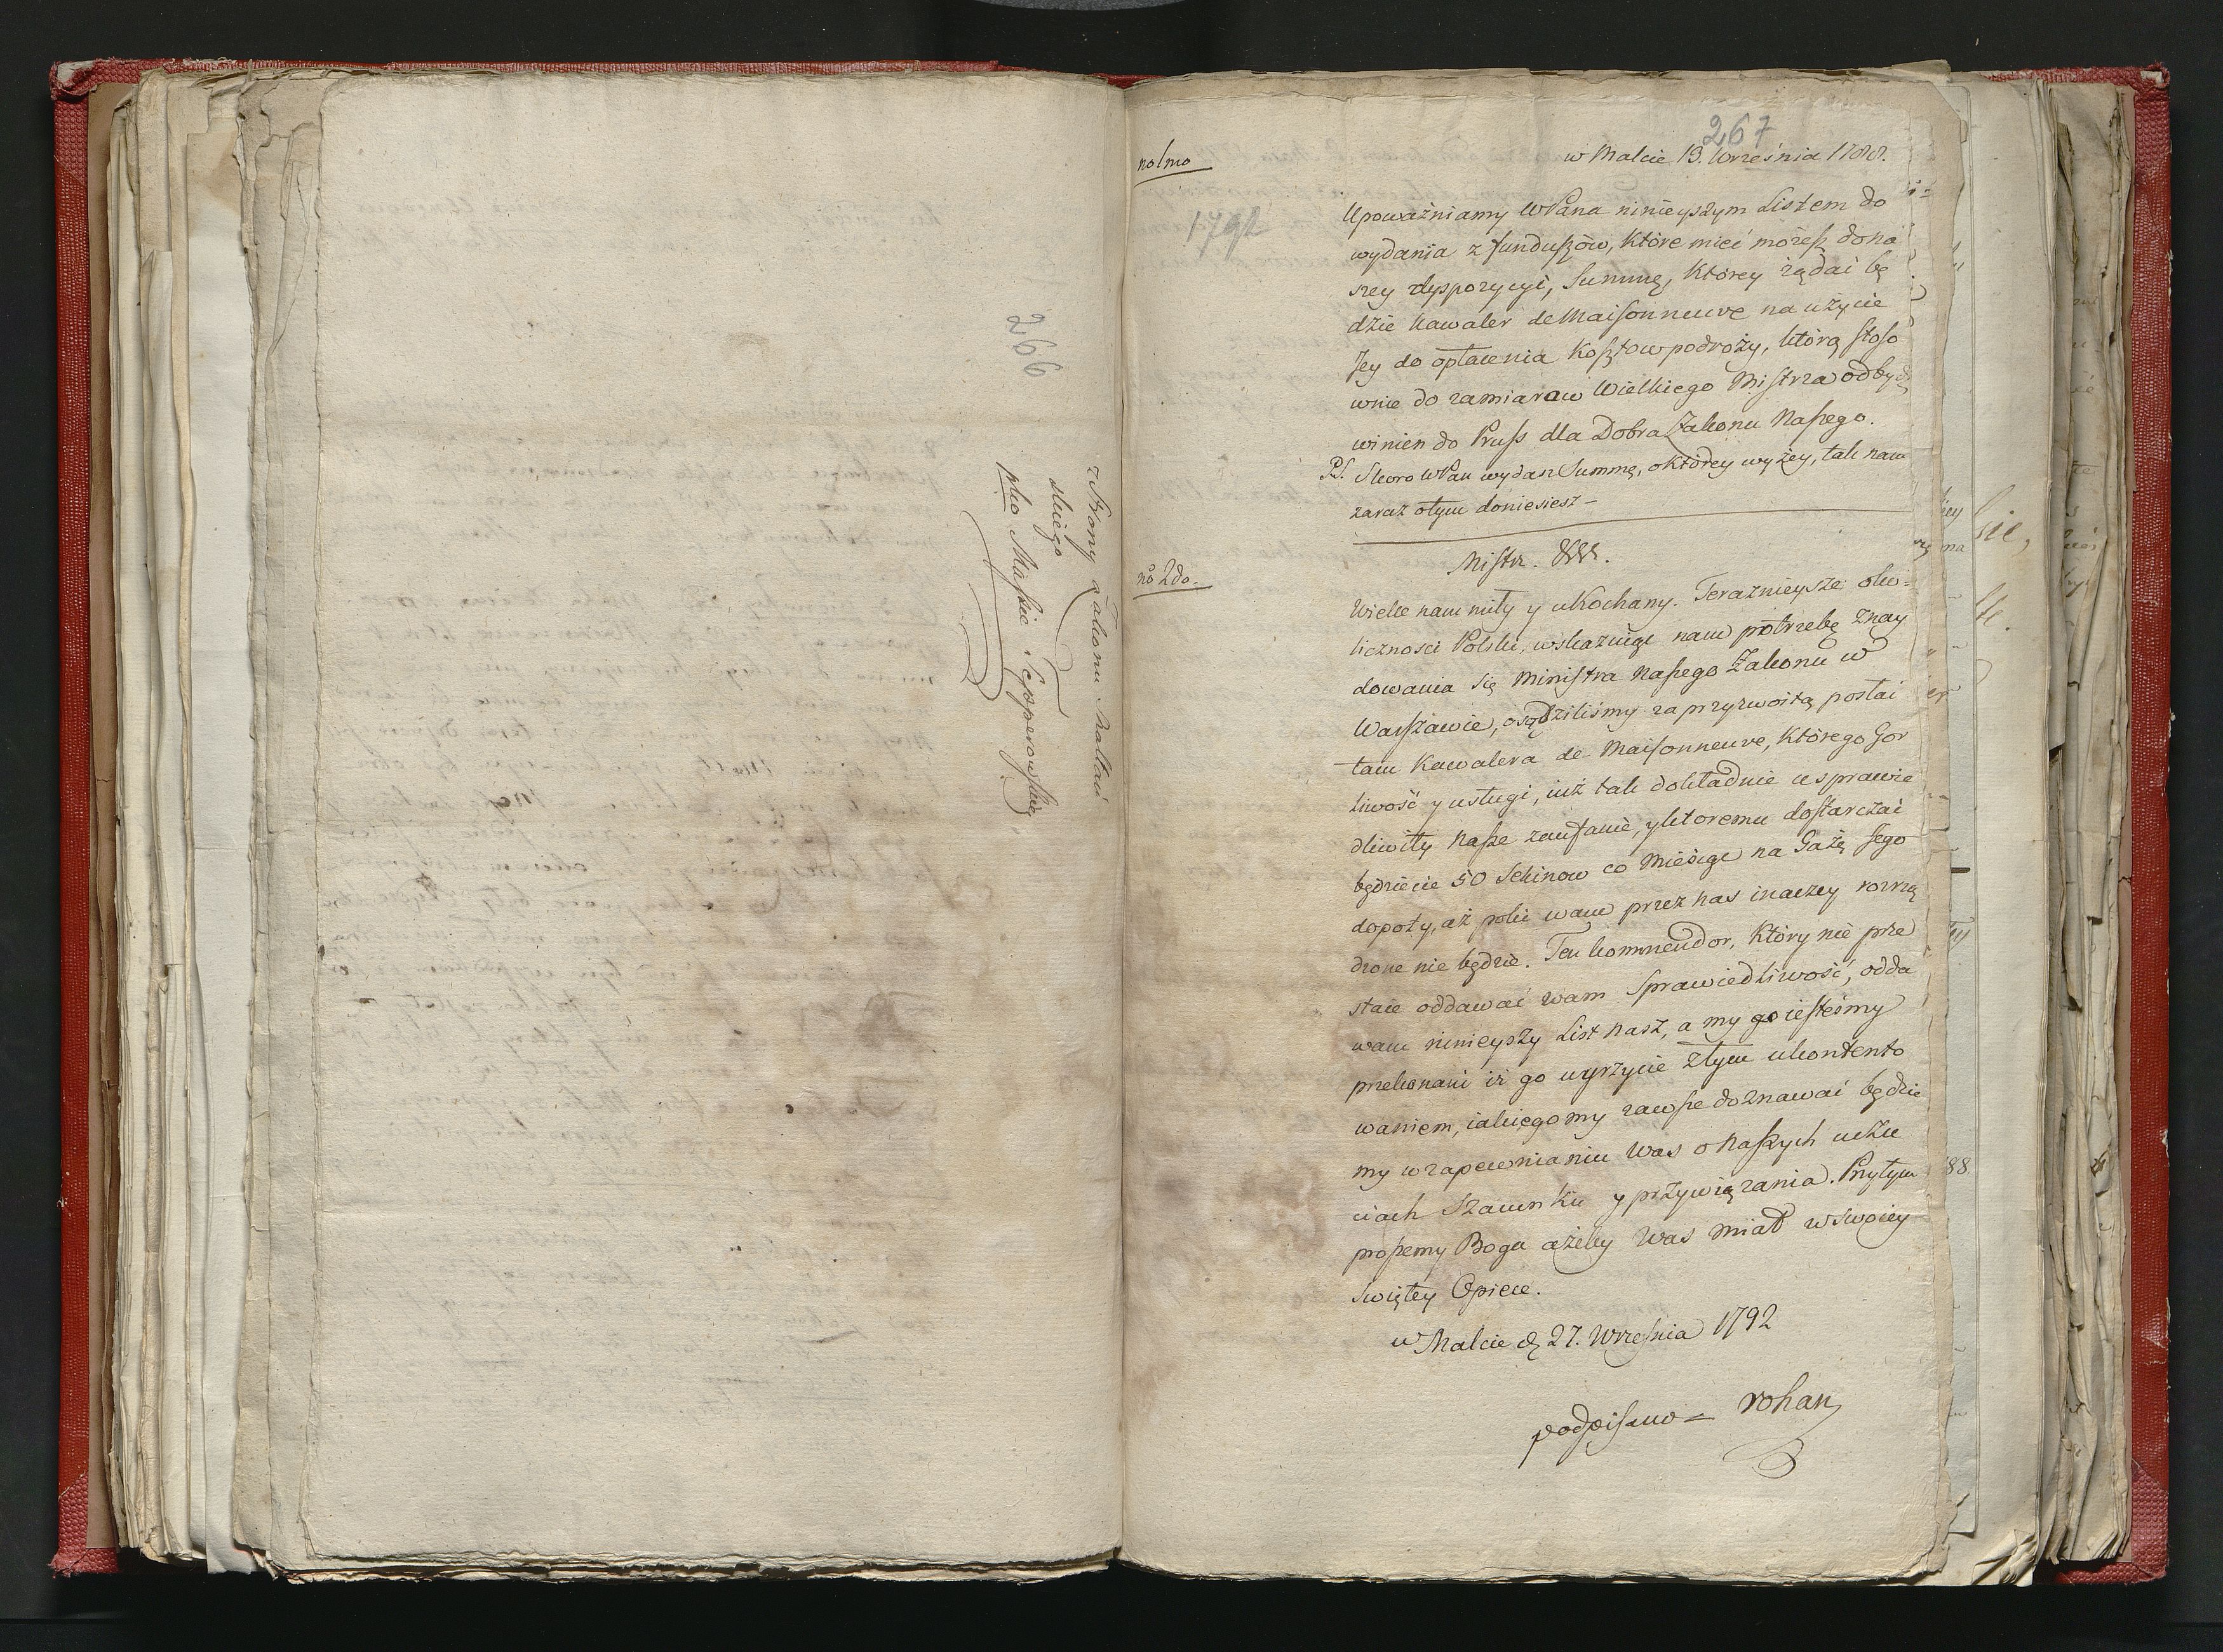 266
z Strony Zakonu Maltań
skiego
pko Maſsie Tepperowſkiey
267
no 1mo
w Malcie 13. Września 1788.
1792
Upoważniamy WPana ninieyszym Listem do
wydania z funduſzów, które mieć możeſz do na
szey dyspozycyi, Summę, którey żądać bę
dzie Kawaler de Maiſonneuve na użycie
Jey do opłacenia Koſztow podroży, którą ſtoſo
wnie do zamiarow Wielkiego Miſtrza odbydź
winien do Pruſs dla Dobra Zakonu Naſzego.
PS. Skoro WPan wydasz Summę, o którey wyżey, tak nam
zaraz o tym doniesiesz –
no 2do.
Miſtrz.
Wielce nam miły y ukochany. Teraznieysze oko=
liczności Polski, wskazuige nam potrzebę znay
dowania się Ministra Naſzego Zakonu w
Warſzawie, osądziliśmy za przyzwoitą posłać
tam Kawalera de Maiſonneuve, którego Gor
liwość y usługi, iuż tak dokładnie usprawie
dliwiły naſze zaufanie, y ktoremu doſtarczać
będziecie 50 Sekinow co Mieśiąc na Gażę Jego
dopoty, aż poki wam przez nas inaczey rozrzą
dzone nie będzie. Ten kommendor, który nie prze
staie oddawać wam Sprawiedliwość, odda
wam ninieyszy List nasz, a my go ieſteśmy
przekonani iż go uyrzycie z tym ukontento
waniem, iakiego my zawſze doznawać będzie
my w zapewnianiu Was o naſzych uczu
ciach Szacunku y przywiązania. Przytym
proſzemy Boga ażeby Was miał w swoiey
Swiętey Opiece.
w Malcie d. 27. Wrzeſnia 1792
podpisano = rohan